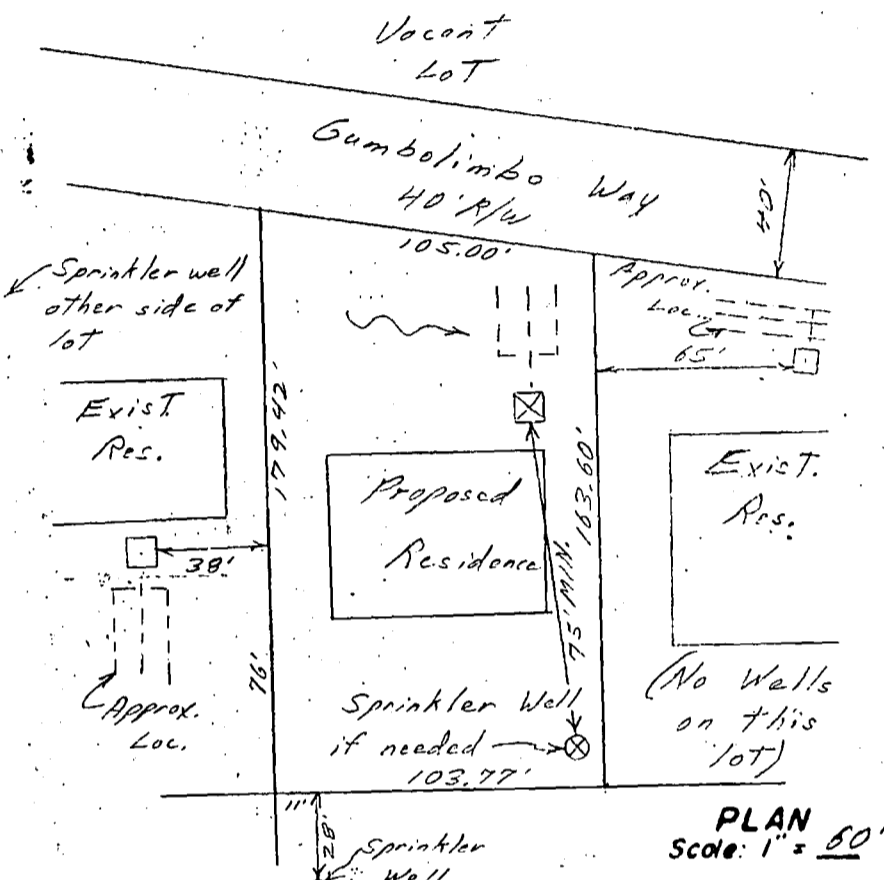 Vacant
Lot
Gumbolimbo Way
40' R/W
40'
105.00'
Sprinkler well
other side of
lot
Approx.
Loc.
65'
Exist.
Res.
179.42'
Proposed
Residence
163.60'
75' MIN.
Exist.
Res.
38'
76'
Approx.
Loc.
Sprinkler Well
if needed
103.77'
(No Wells
on this
lot)
11'
28'
Sprinkler
Well
PLAN
Scale: 1" = 60'